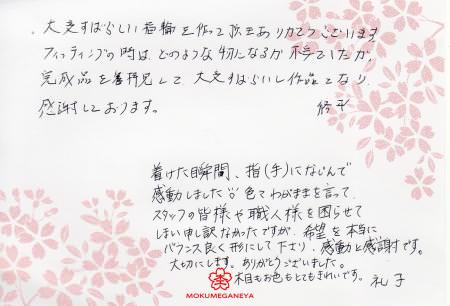 大変すばらしい指輪を作って頂きありがとうございます
フィッティングの時は、どのような切になるか不安でしたが、
完成品を拝見して、大変すばらしい作品となり、
感謝しております。
修平
着けた瞬間、指(手)になじんで
感動しました♡♡色々わがままを言って、
スタッフの皆様や職人様を困らせて
しまい申し訳なかったですが、希望を本当に
バランス良く形にして下さり、感動と感謝です。
大切にします。ありがとうございました。
木目もお色もとてもきれいです。 礼子
MOKUMEGANEYA